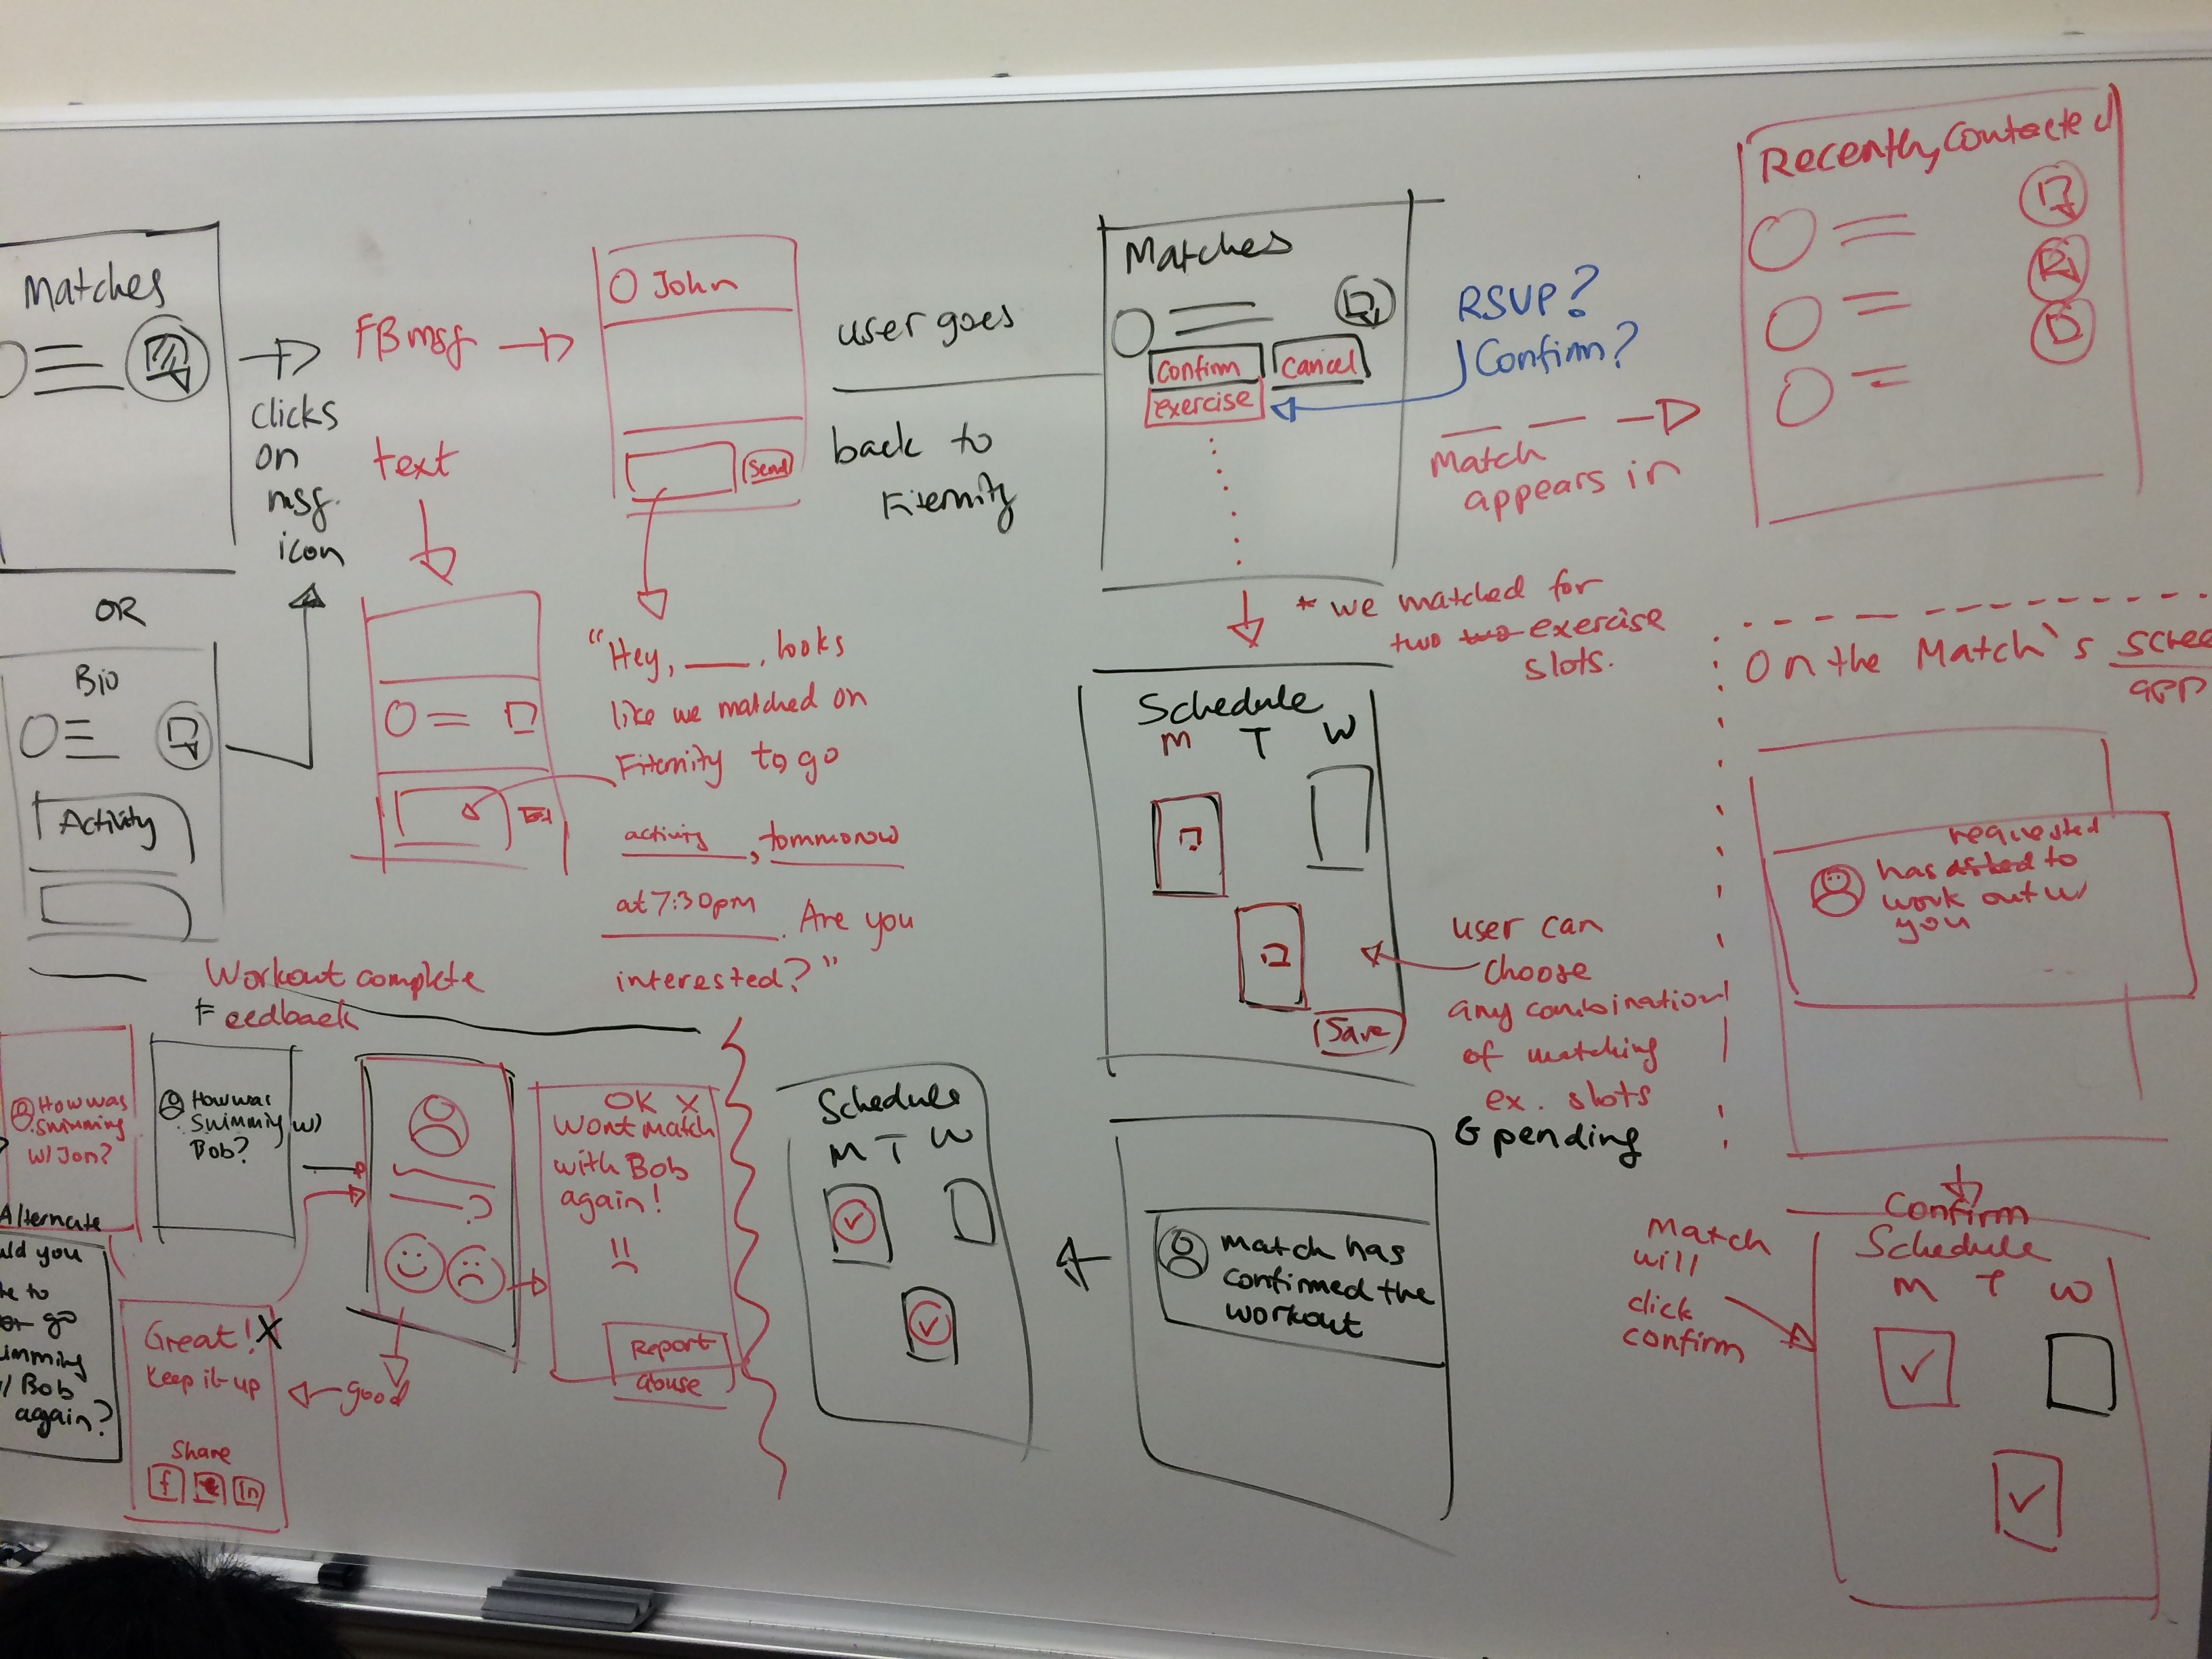 Matches
OR
Bio
Activity
clicks
on
msg.
icon
FB msg
text
John
Send
"Hey, ____, looks
like we matched on
Fiternity to go
activity, tommorow
at 7:30pm. Are you
interested?"
user goes
back to
Fiternity
Matches
Confirm
Cancel
exercise
RSVP?
Confirm?
Match
appears in
Recently Contacted
* we matched for
two two exercise
slots.
Schedule
M T W
Save
user can
choose
any combination
of matching
ex. slots
& pending
On the Match's
app
requested
has asked to
work out w/
you
Confirm
Match
will
click
confirm
Schedule
M T W
match has
confirmed the
workout
Schedule
M T W
Workout complete
Feedback
How was
Swimming
w/ Jon?
How was
Swimming w/
Bob?
?
OK X
Wont match
with Bob
again!
Report
abuse
good
Great! X
Keep it up
Share
f
in
Alternate
you
to
go
Bob
again?